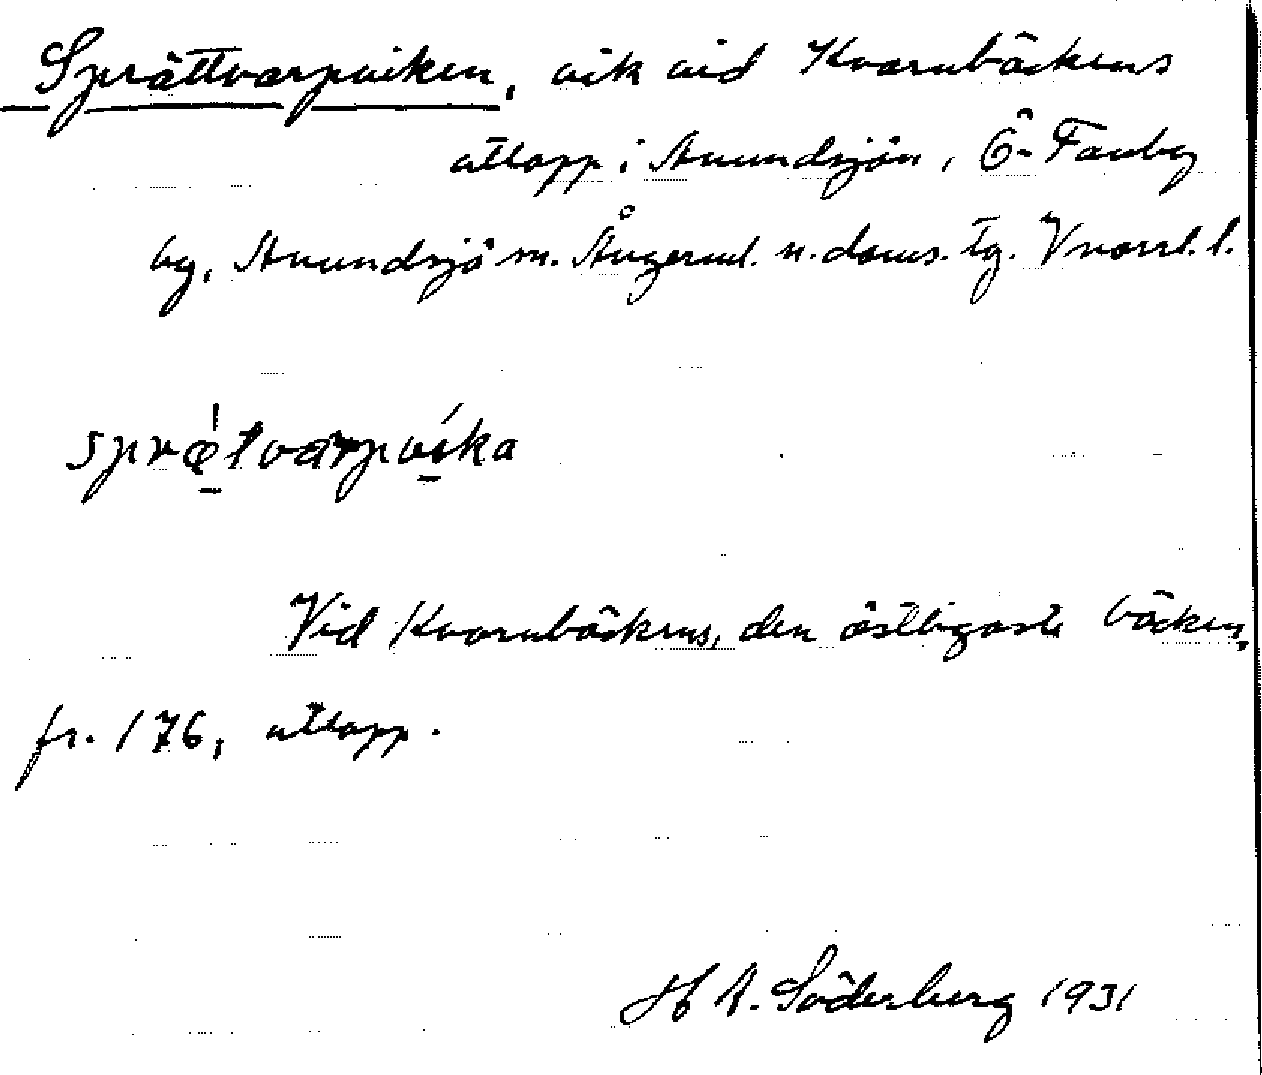 Sprättvarpviken, vik vid Kvarnbäckens
utlopp i Anundsjön, Ö-Tanby
by, Anundsjö sn. Ångerml. n. doms. tg. Vnorrl. l.
sprætvarpvika
Vid Kvarnbäckens, den östligaste bäcken,
fr. 176, utlopp.
H A. Söderberg 1931